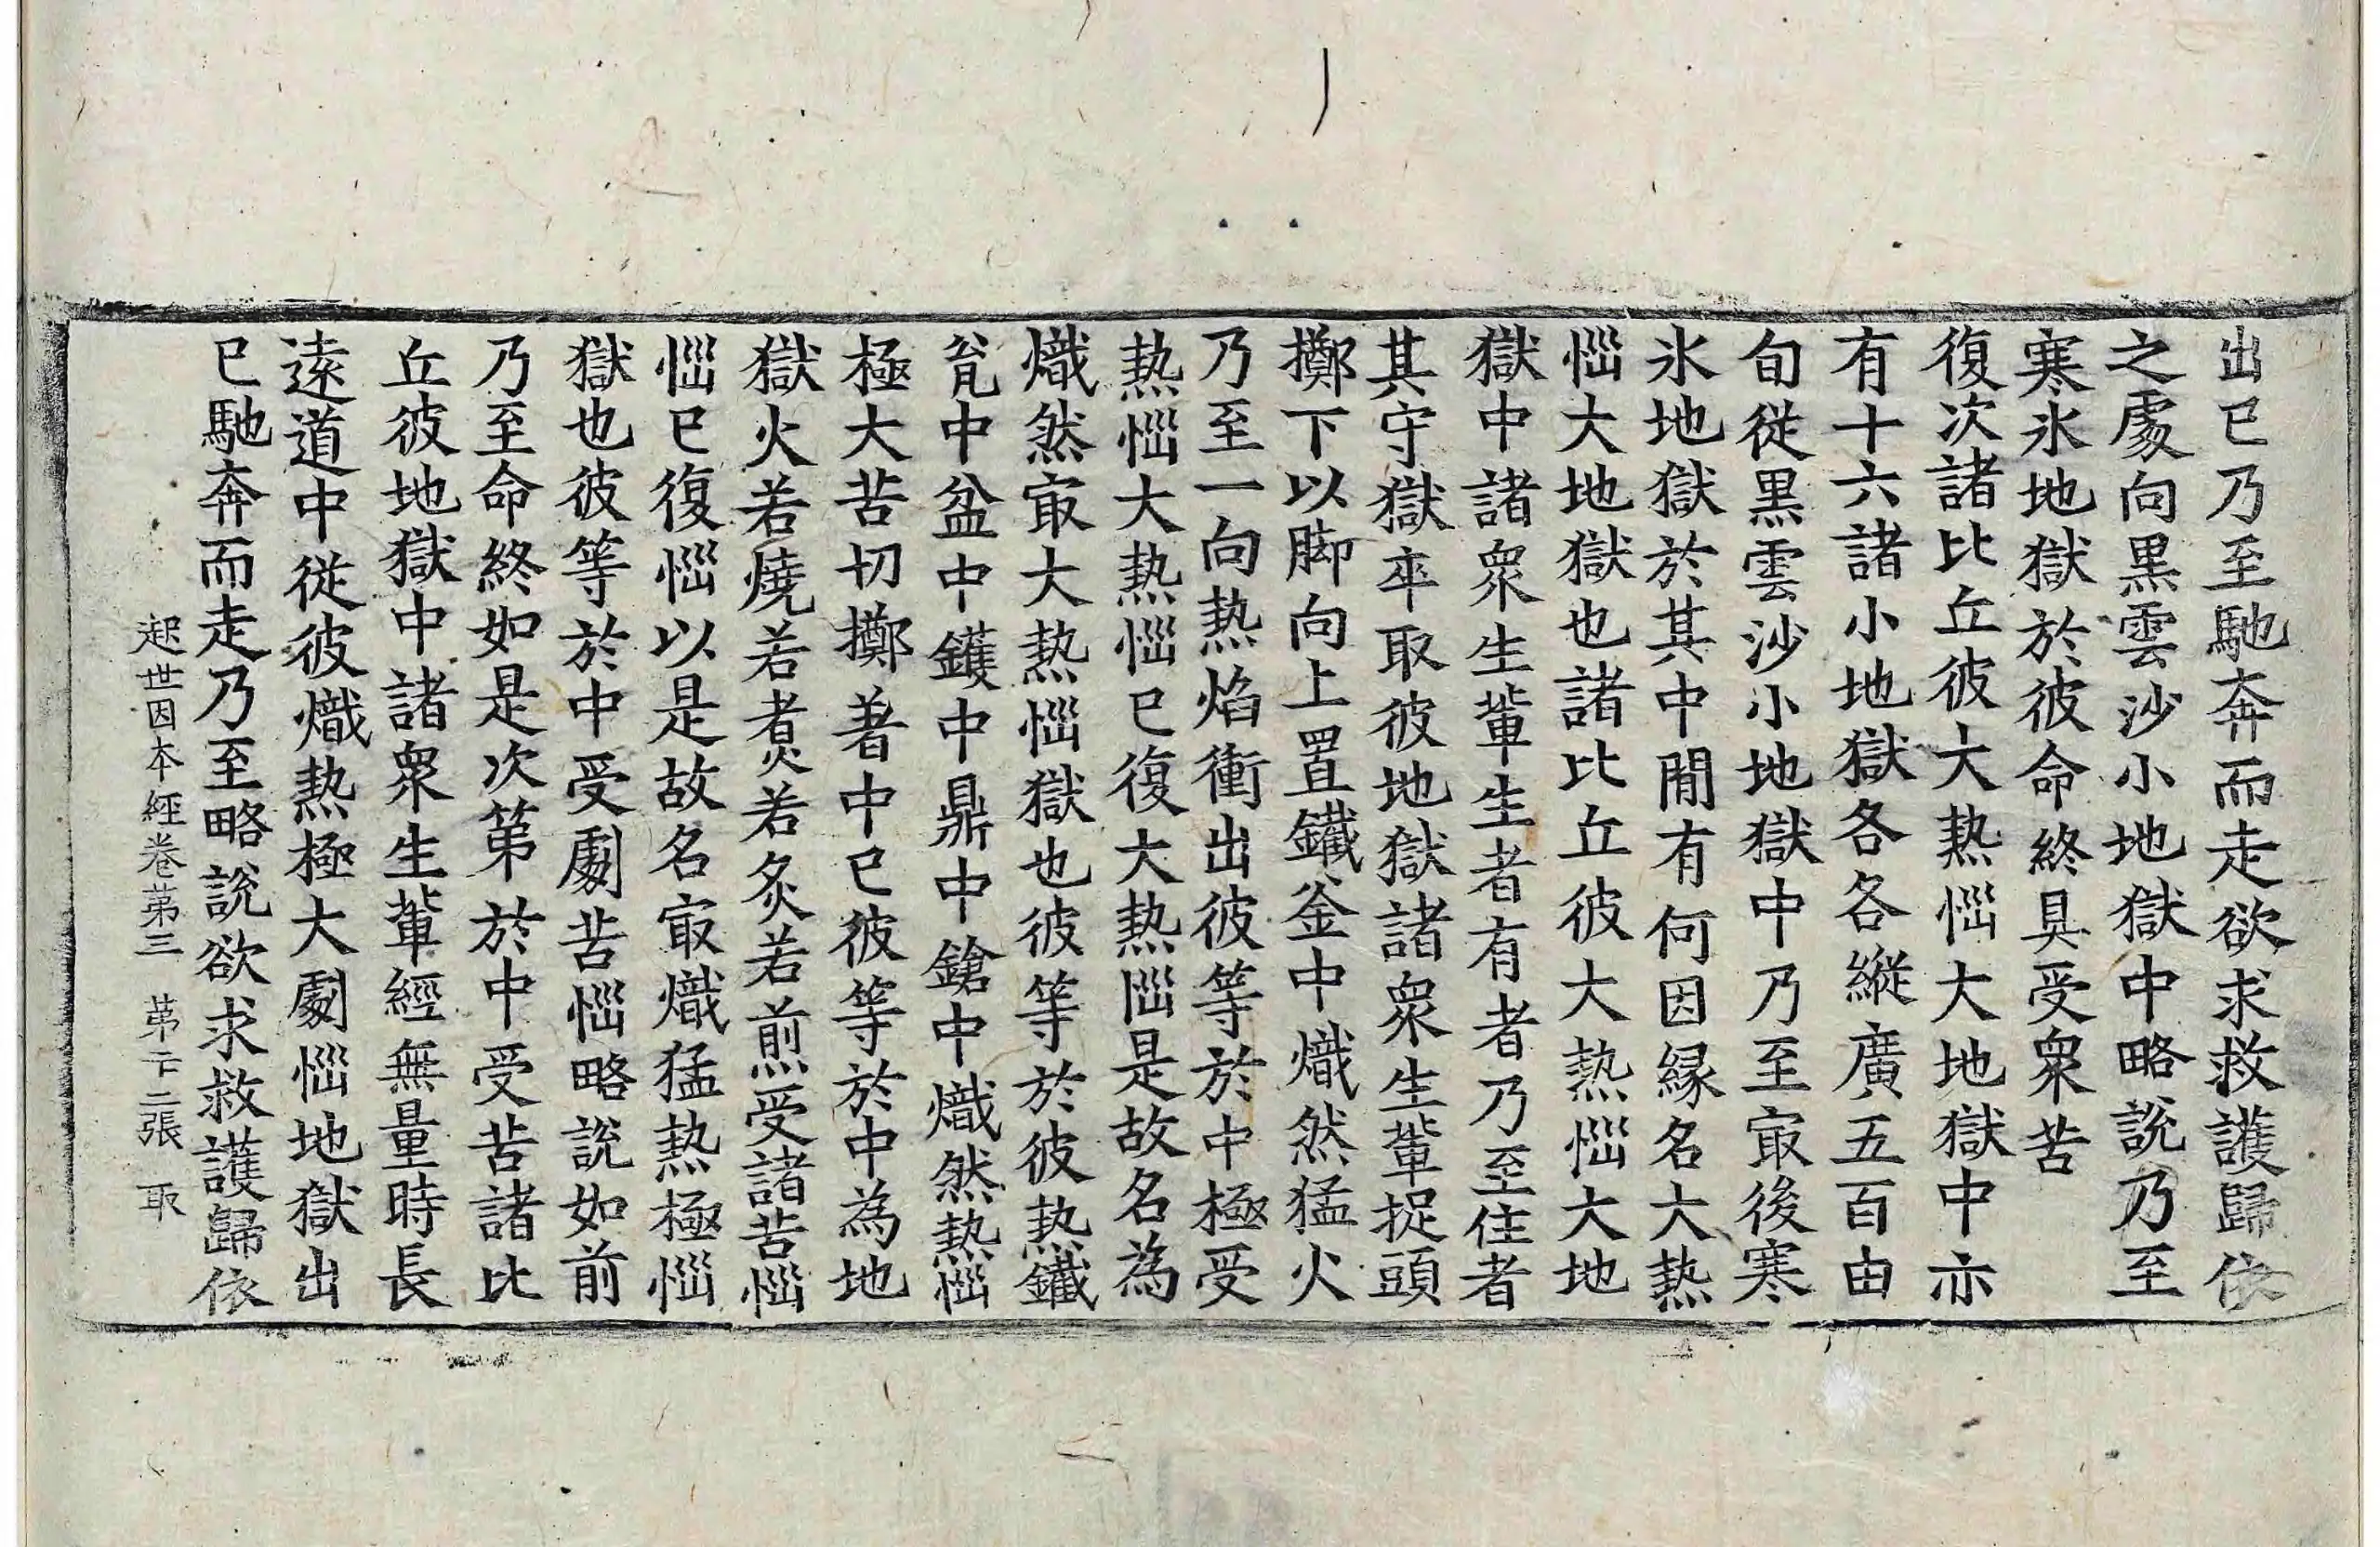 出已乃至馳奔而走欲求救護歸依
之處向黒雲沙小地獄中略說乃至
寒氷地獄於彼命終具受衆苦
復次諸比丘彼大熱惱大地獄中亦
有十六諸小地獄各各縱廣五百由
旬從黒雲沙小地獄中乃至寂後寒
氷地獄於其中閒有何因緣名大熱
惱大地獄也諸比丘彼大熱惱大地
獄中諸衆生軰生者有者乃至住者
其守獄卒取彼地獄諸衆生軰捉頭
擲下以脚向上置鐵釜中熾然猛火
乃至一向熱焰衝出彼等於中極受
熱惱大熱惱已復大熱惱是故名為
熾然冣大熱惱獄也彼等於彼熱鐵
瓮中盆中鑊中鼎中鎗中熾然熱惱
極大苦切擲著中已彼等於中為地
獄火若燒若煑若炙若煎受諸苦惱
惱已復惱以是故名冣熾猛熱極惱
獄也彼等於中受劇苦惱略說如前
乃至命終如是次第於中受苦諸比
丘彼地獄中諸衆生軰經無量時長
遠道中從彼熾熱極大劇惱地獄出
已馳奔而走乃至略說欲求救護歸依
起世因本經卷第三　第二十二張　取